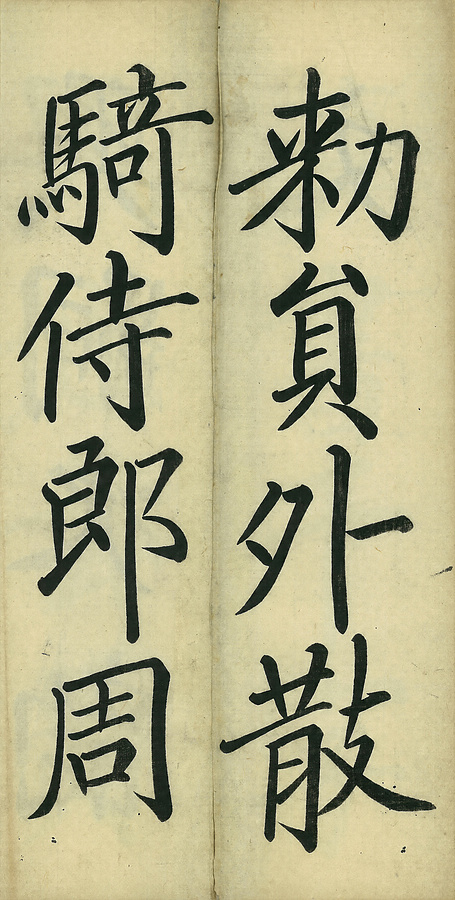 勑員外散
騎侍郎周